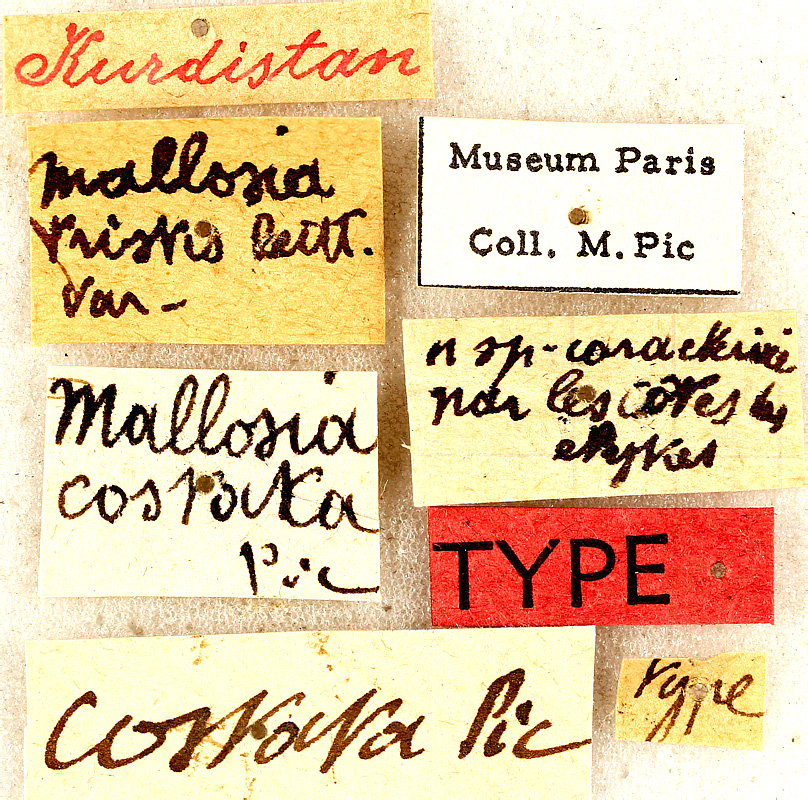 Kurdistan
Mallosia
tristis
var-
Museum Paris
Coll. M. Pic
n sp-
par les côtes
Mallosia
costata
Pic
TYPE
costata Pic
type